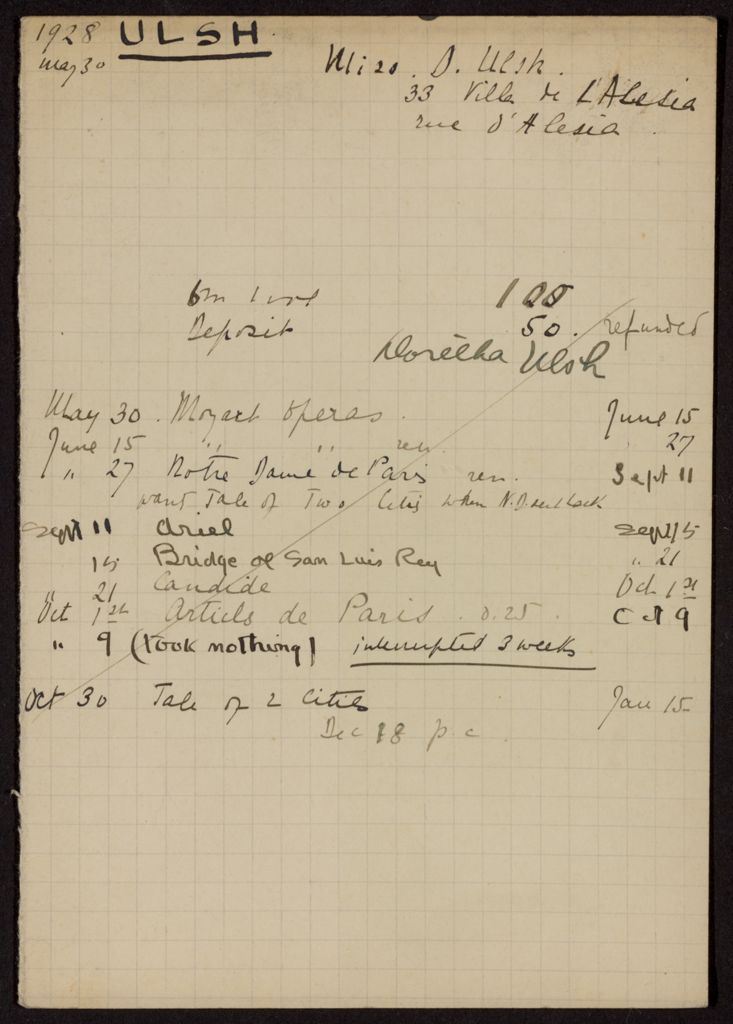 1928 ULSH.
May 30 Miss. D. Ulsh.
33 Villa de L'Alesia
rue d'Alesia.
6m 1 vol 100
Deposit 50. refunded
Dorětha Ulsh
May 30. Mozart operas. June 15
June 15 " " ren. " 27
" 27 Notre Dame de Paris ren. Sept 11
want Tale of Two Cities when N.D. sent back
Sept 11 Ariel Sept 15
15 Bridge of San Luis Rey " 21
" 21 Candide Oct 1st
Oct 1st Articles de Paris. 0.25. Oct 9
" 9 (took nothing) interrupted 3 weeks
Oct 30 Tale of 2 Cities Jan 15
Dec 18 p c